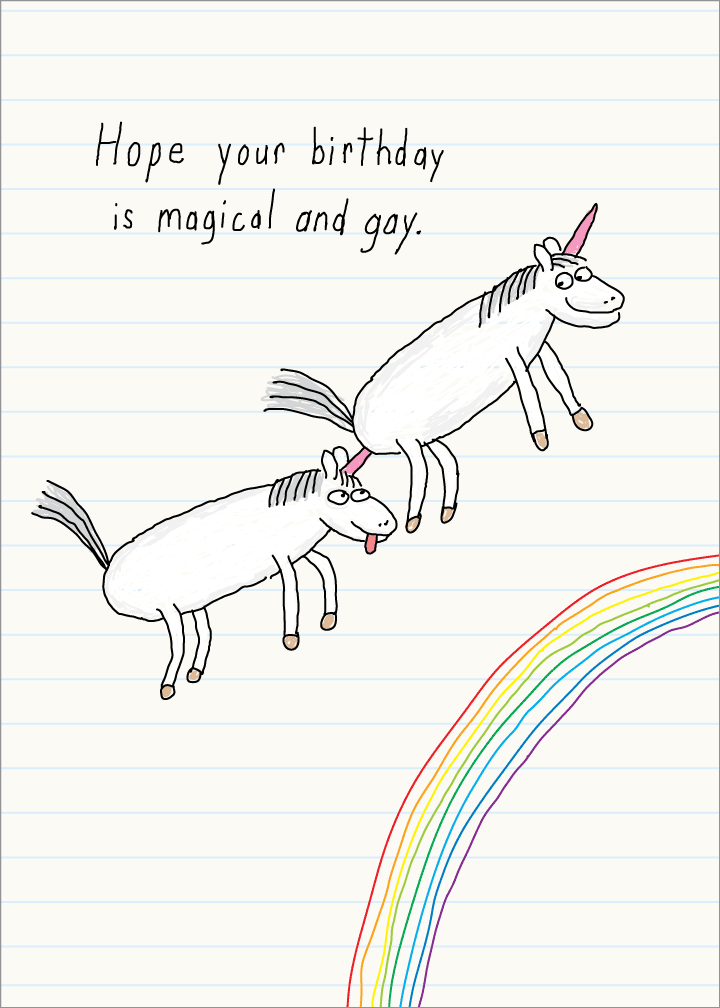 Hope your birthday
is magical and gay.